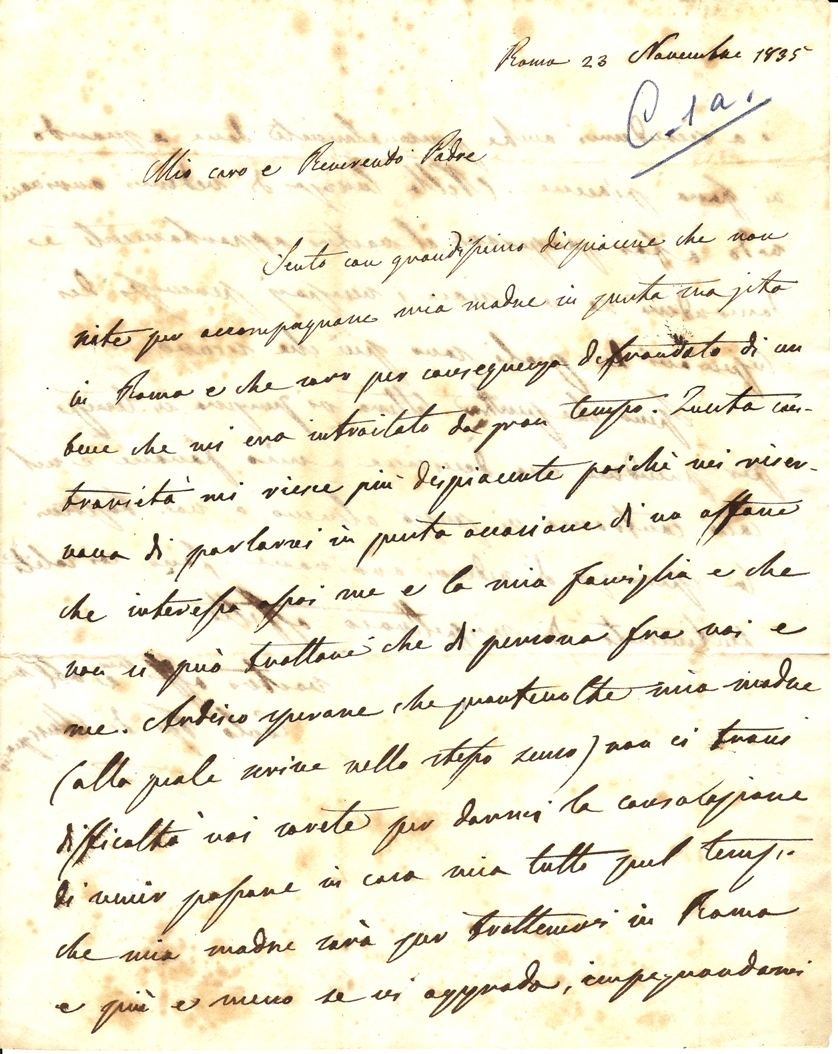 Roma 23 Novembre 1835
C. 1a.
Mio caro e Reverendo Padre
Sento con grandissimo dispiacere che non
siete per accompagnare mia madre in questa sua gita
in Roma e che sarò per conseguenza defraudato di un
bene che mi era intraitato da gran tempo. Questa con-
trarietà mi riesce più dispiacente poichè mi riser-
vava di parlarvi in questa occasione di un affare
che interessa assai me e la mia famiglia e che
non si può trattare che di persona fra voi e
me. Ardisco sperare che quantevolte mia madre
(alla quale scrive nello stesso senso) non ci trovi
difficoltà voi sarete per darmi la consolazione
di venir passare in casa mia tutto quel tempo
che mia madre sarà per trattenersi in Roma
e più e meno se vi aggrada, impegnandomi